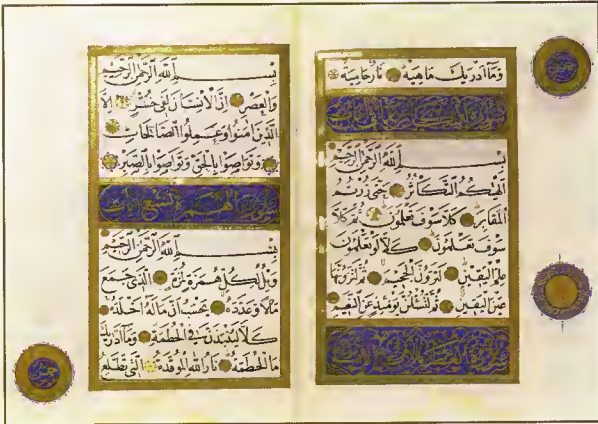 وَمَا أَدْرَيكَ مَاهِيَهْ نَارٌ حَامِيَةٌ
سورة
بِسْمِ اللهِ الرَّحْمَنِ الرَّحِيمِ
أَلْهَيكُمُ التَّكَاثُرُ حَتَّى زُرْتُمُ
الْمَقَابِرَ كَلَّا سَوْفَ تَعْلَمُونَ ثُمَّ كَلَّا
سَوْفَ تَعْلَمُونَ كَلَّا لَوْ تَعْلَمُونَ
عِلْمَ الْيَقِينِ لَتَرَوُنَّ الْجَحِيمَ ثُمَّ لَتَرَوُنَّهَا
عَيْنَ الْيَقِينِ ثُمَّ لَتُسْئَلُنَّ يَوْمَئِذٍ عَنِ النَّعِيمِ
سورة العصر
بِسْمِ اللهِ الرَّحْمَنِ الرَّحِيمِ
وَالْعَصْرِ إِنَّ الْإِنْسَانَ لَفِي خُسْرٍ إِلَّا
الَّذِينَ آمَنُوا وَعَمِلُوا الصَّالِحَاتِ
وَتَوَاصَوْا بِالْحَقِّ وَتَوَاصَوْا بِالصَّبْرِ
سورة الهمزة تسع آيات
بِسْمِ اللهِ الرَّحْمَنِ الرَّحِيمِ
وَيْلٌ لِكُلِّ هُمَزَةٍ لُمَزَةٍ الَّذِي جَمَعَ
مَالًا وَعَدَّدَهُ يَحْسَبُ أَنَّ مَالَهُ أَخْلَدَهُ
كَلَّا لَيُنْبَذَنَّ فِي الْحُطَمَةِ وَمَا أَدْرَيكَ
مَا الْحُطَمَةُ نَارُ اللهِ الْمُوقَدَةُ الَّتِي تَطَّلِعُ